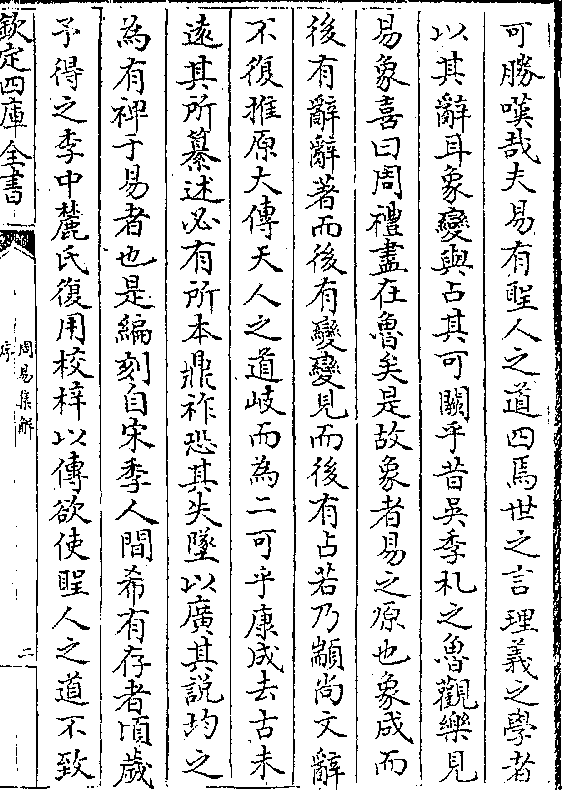 可勝嘆哉夫易有聖人之道四焉世之言理義之學者
以其辭耳象變與占其可闕乎昔吳季札之魯觀樂見
易象喜曰周禮盡在魯矣是故象者易之原也象成而
後有辭辭著而後有變變見而後有占若乃顓尚文辭
不復推原大傳天人之道岐而為二可乎康成去古未
遠其所纂述必有所本鼎祚恐其失墜以廣其說均之
為有裨于易者也是編刻自宋季人間希有存者頃歲
予得之李中麓氏復用校梓以傳欲使聖人之道不致
欽定四庫全書
周易集解
序
二